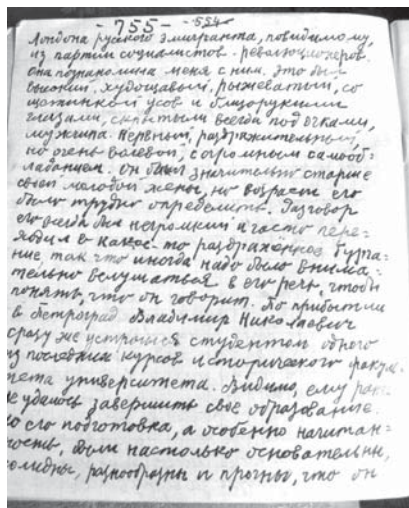 - 755 - 554
Лондона русского эмигранта, повидимому,
из партии социалистов - революционеров.
Она познакомила меня с ним. Это был
высокий, худощавый, рыжеватый, со
щетинкой усов и близорукими
глазами, скрытыми всегда под очками,
мужчина. Нервный, раздражительный,
но очень волевой, с огромным самооб=
ладанием. Он был значительно старше
своей молодой жены, но возраст его
было трудно определить. Разговор
его всегда был негромкий и часто пере=
ходил в какое-то раздраженное бурча=
ние, так что иногда надо было внима=
тельно вслушаться в его речь, чтобы
понять, что он говорит. По прибытии
в Петроград Владимир Николаевич
сразу же устроился студентом одного
из последних курсов исторического факуль
тета университета. Видимо, ему
не удалось завершить свое образование.
Но его подготовка, а особенно начитан=
ность, были настолько основательны,
солидны, разнообразны и прочны, что он